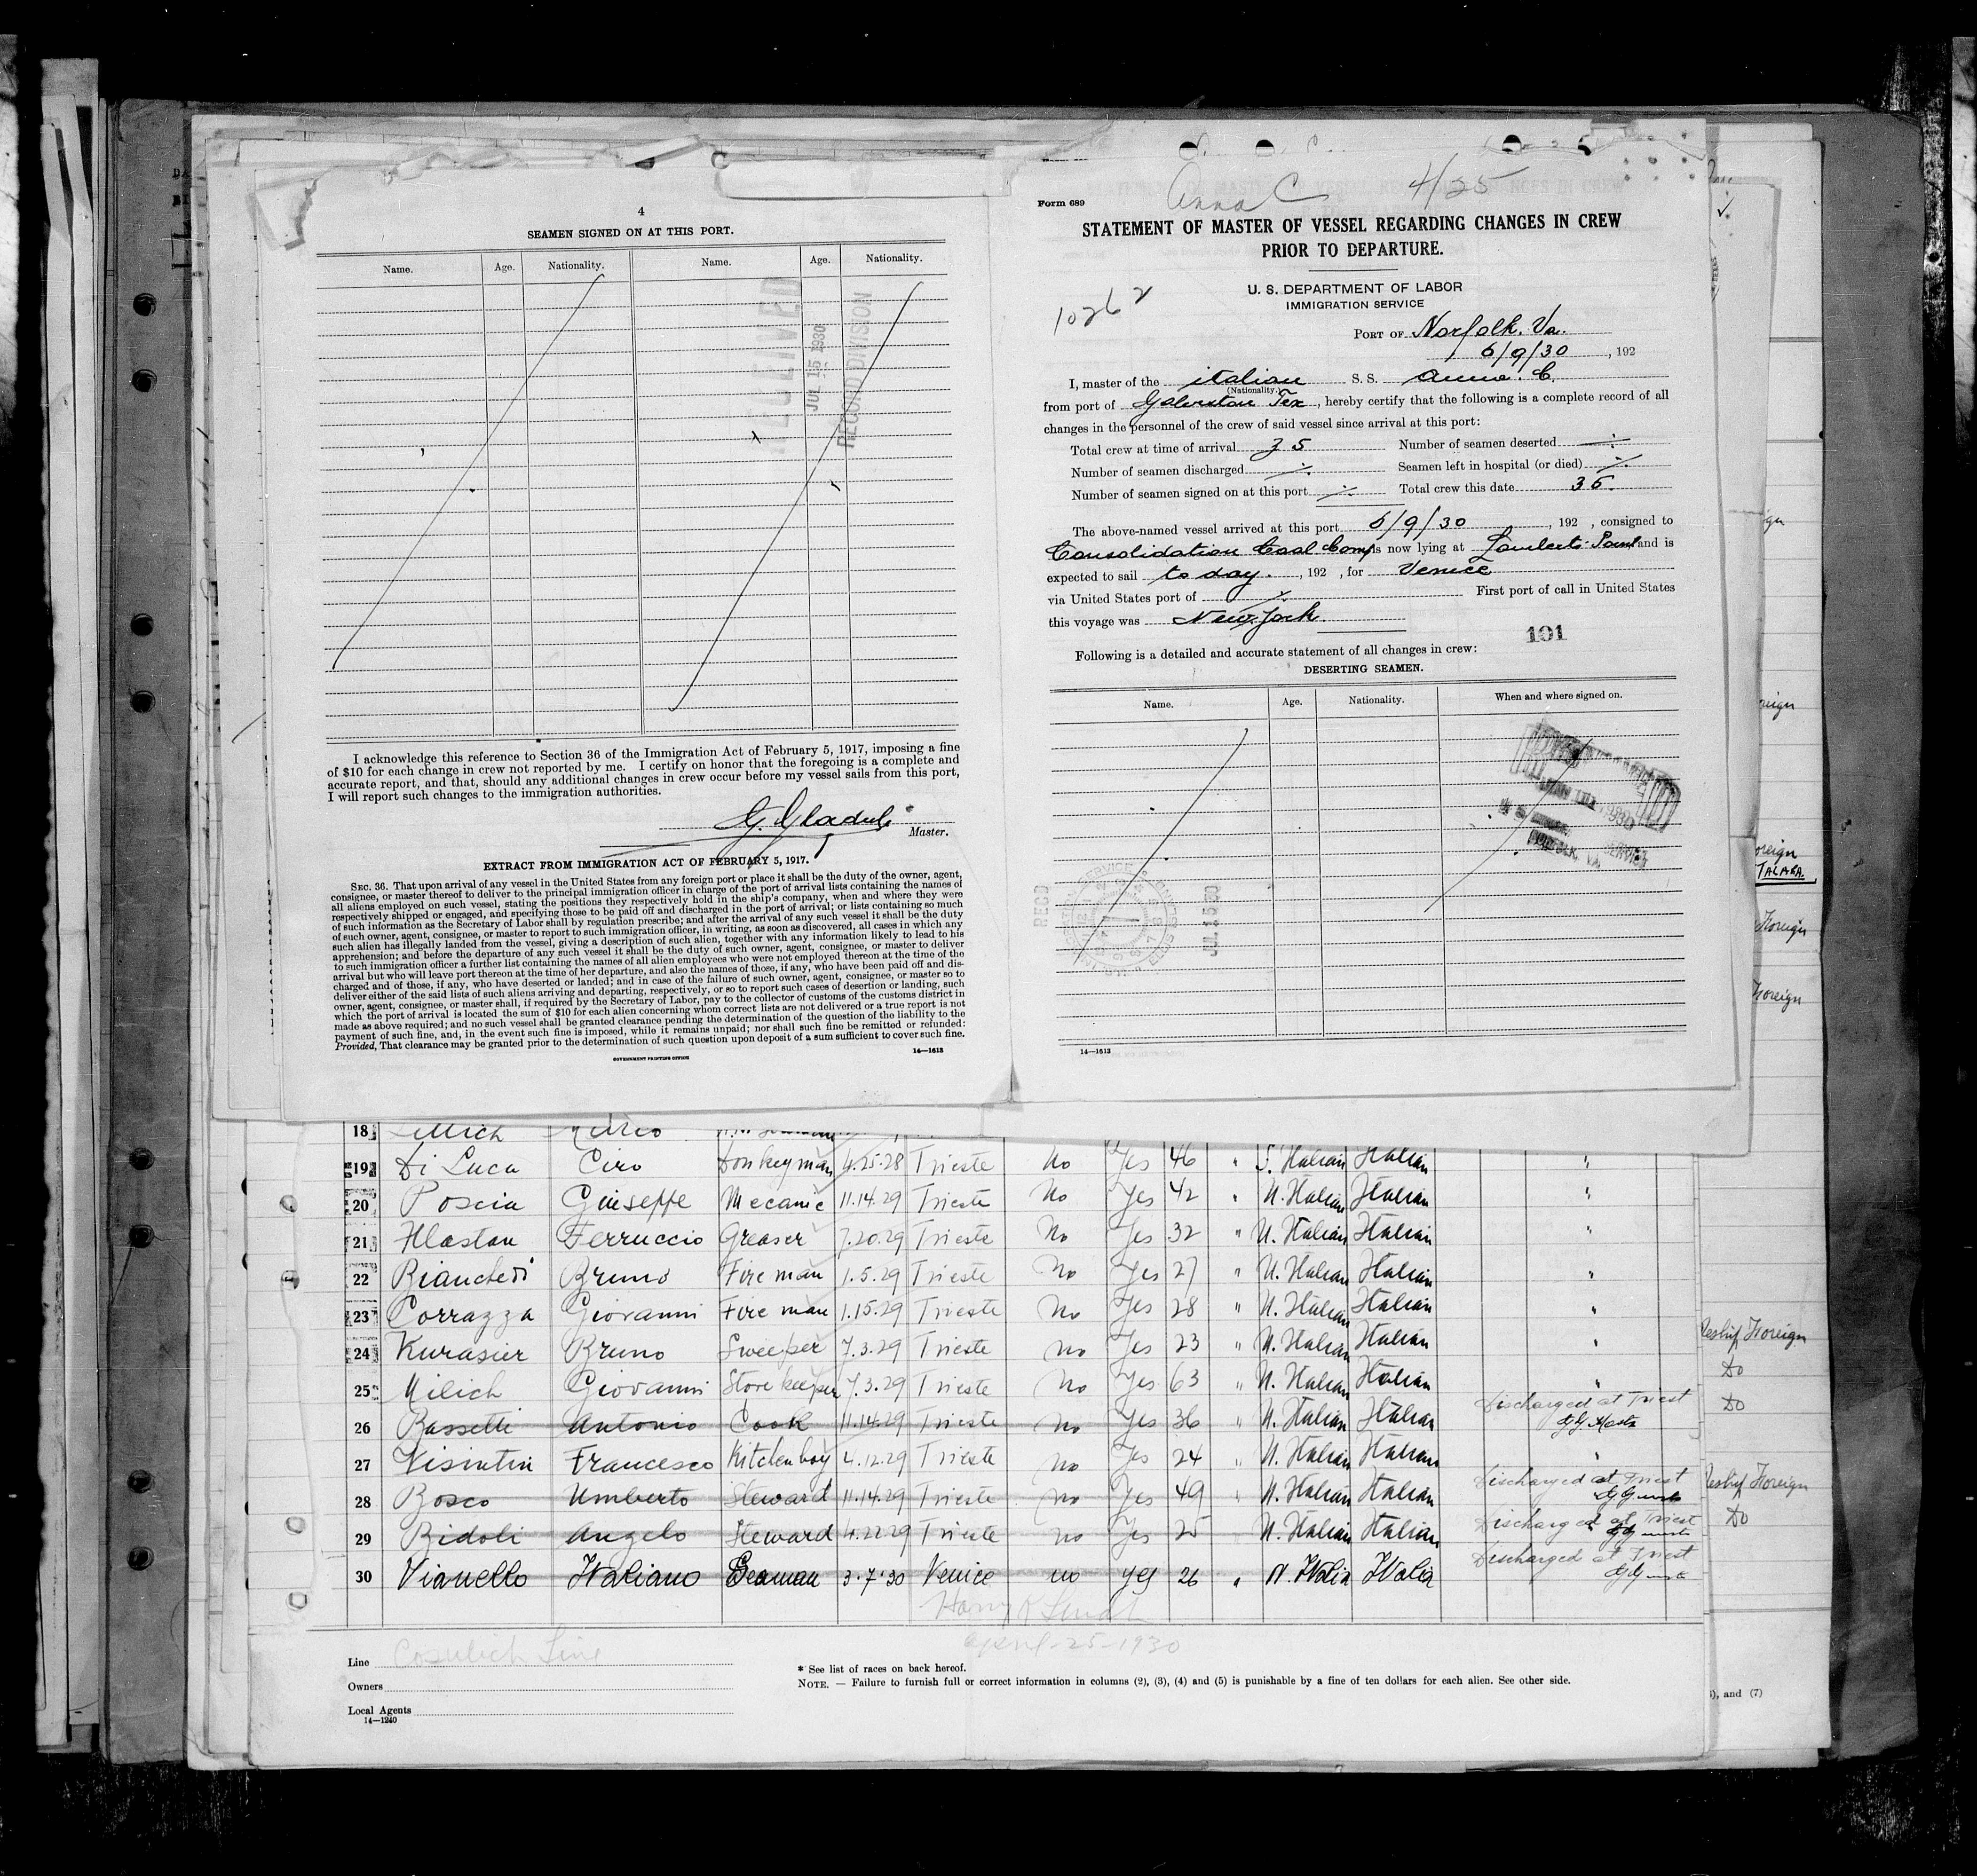 4
SEAMEN SIGNED ON AT THIS PORT.
Name. Age. Nationality. Name. Age. Nationality.
RECEIVED
JUL 15 1930
RECORD DIVISION
I acknowledge this reference to Section 36 of the Immigration Act of February 5, 1917, imposing a fine
of $10 for each change in crew not reported by me. I certify on honor that the foregoing is a complete and
accurate report, and that, should any additional changes in crew occur before my vessel sails from this port,
I will report such changes to the immigration authorities.
Master.
EXTRACT FROM IMMIGRATION ACT OF FEBRUARY 5, 1917.
SEC. 36. That upon arrival of any vessel in the United States from any foreign port or place it shall be the duty of the owner, agent,
consignee, or master thereof to deliver to the principal immigration officer in charge of the port of arrival lists containing the names of
all aliens employed on such vessel, stating the positions they respectively hold in the ship's company, when and where they were
respectively shipped or engaged, and specifying those to be paid off and discharged in the port of arrival; or lists containing so much
of such information as the Secretary of Labor shall by regulation prescribe; and after the arrival of any such vessel it shall be the duty
of such owner, agent, consignee, or master to report to such immigration officer, in writing, as soon as discovered, all cases in which any
such alien has illegally landed from the vessel, giving a description of such alien, together with any information likely to lead to his
apprehension; and before the departure of any such vessel it shall be the duty of such owner, agent, consignee, or master to deliver
to such immigration officer a further list containing the names of all alien employees who were not employed thereon at the time of the
arrival but who will leave port thereon at the time of her departure, and also the names of those, if any, who have been paid off and dis-
charged and of those, if any, who have deserted or landed; and in case of the failure of such owner, agent, consignee, or master so to
deliver either of the said lists of such aliens arriving and departing, respectively, or so to report such cases of desertion or landing, such
owner, agent, consignee, or master shall, if required by the Secretary of Labor, pay to the collector of customs of the customs district in
which the port of arrival is located the sum of $10 for each alien concerning whom correct lists are not delivered or a true report is not
made as above required; and no such vessel shall be granted clearance pending the determination of the question of the liability to the
payment of such fine, and, in the event such fine is imposed, while it remains unpaid; nor shall such fine be remitted or refunded:
Provided, That clearance may be granted prior to the determination of such question upon deposit of a sum sufficient to cover such fine.
GOVERNMENT PRINTING OFFICE 14—1613
Anna C 4/25
Form 689
STATEMENT OF MASTER OF VESSEL REGARDING CHANGES IN CREW
PRIOR TO DEPARTURE.
U. S. DEPARTMENT OF LABOR
IMMIGRATION SERVICE
PORT OF Norfolk. Va.
6/9/30, 192
I, master of the italian S. S. Anna. C.
(Nationality.)
from port of Galveston Tex, hereby certify that the following is a complete record of all
changes in the personnel of the crew of said vessel since arrival at this port:
Total crew at time of arrival 35 Number of seamen deserted
Number of seamen discharged Seamen left in hospital (or died)
Number of seamen signed on at this port Total crew this date 35.
The above-named vessel arrived at this port 6/9/30, 192 , consigned to
Consolidation Coal Comp is now lying at Lamberts and is
expected to sail to day., 192 , for Venice
via United States port of First port of call in United States
this voyage was New York
101
Following is a detailed and accurate statement of all changes in crew:
DESERTING SEAMEN.
Name. Age. Nationality. When and where signed on.
NORFOLK, VA.
REC'D
JUL 15 30
14—1613
18
19 Di Luca Ciro Donkeyman 4.25.28 Trieste No Yes 46 " S. Italian Italian "
20 Poscia Giuseppe Mecanic 11.14.29 Trieste No Yes 42 " N. Italian Italian "
21 Hlastan Ferruccio Greaser 7.20.29 Trieste No Yes 32 " N. Italian Italian "
22 Bruno Fireman 1.5.29 Trieste No Yes 27 " N. Italian Italian "
23 Corrazza Giovanni Fire man 1.15.29 Trieste No Yes 28 " N. Italian Italian "
24 Kurasier Bruno Sweeper 7.3.29 Trieste No Yes 23 " N. Italian Italian "
25 Milich Giovanni Store keeper 7.3.29 Trieste No Yes 63 " N. Italian Italian "
26 Bassetti Antonio Cook 11.14.29 Trieste No Yes 36 " N. Italian Italian Discharged at Triest
27 Visintin Francesco Kitchen boy 4.12.29 Trieste No Yes 24 " N. Italian Italian "
28 Bosco Umberto Steward 11.14.29 Trieste No Yes 49 " N. Italian Italian Discharged at Triest
29 Bidoli Angelo Steward 4.22.29 Trieste No Yes 25 " N. Italian Italian Discharged at Triest
30 Vianello Italiano Seaman 3.7.30 Venice no yes 26 " N. Italia Italia Discharged at Triest
April-25-1930
Line Cosulich Line
Owners
Local Agents
14—1240
* See list of races on back hereof.
NOTE. — Failure to furnish full or correct information in columns (2), (3), (4) and (5) is punishable by a fine of ten dollars for each alien. See other side.
Foreign
TALARA.
Foreign
Foreign
Reship Foreign
Do
Do
Reship Foreign
Do
, and (7)